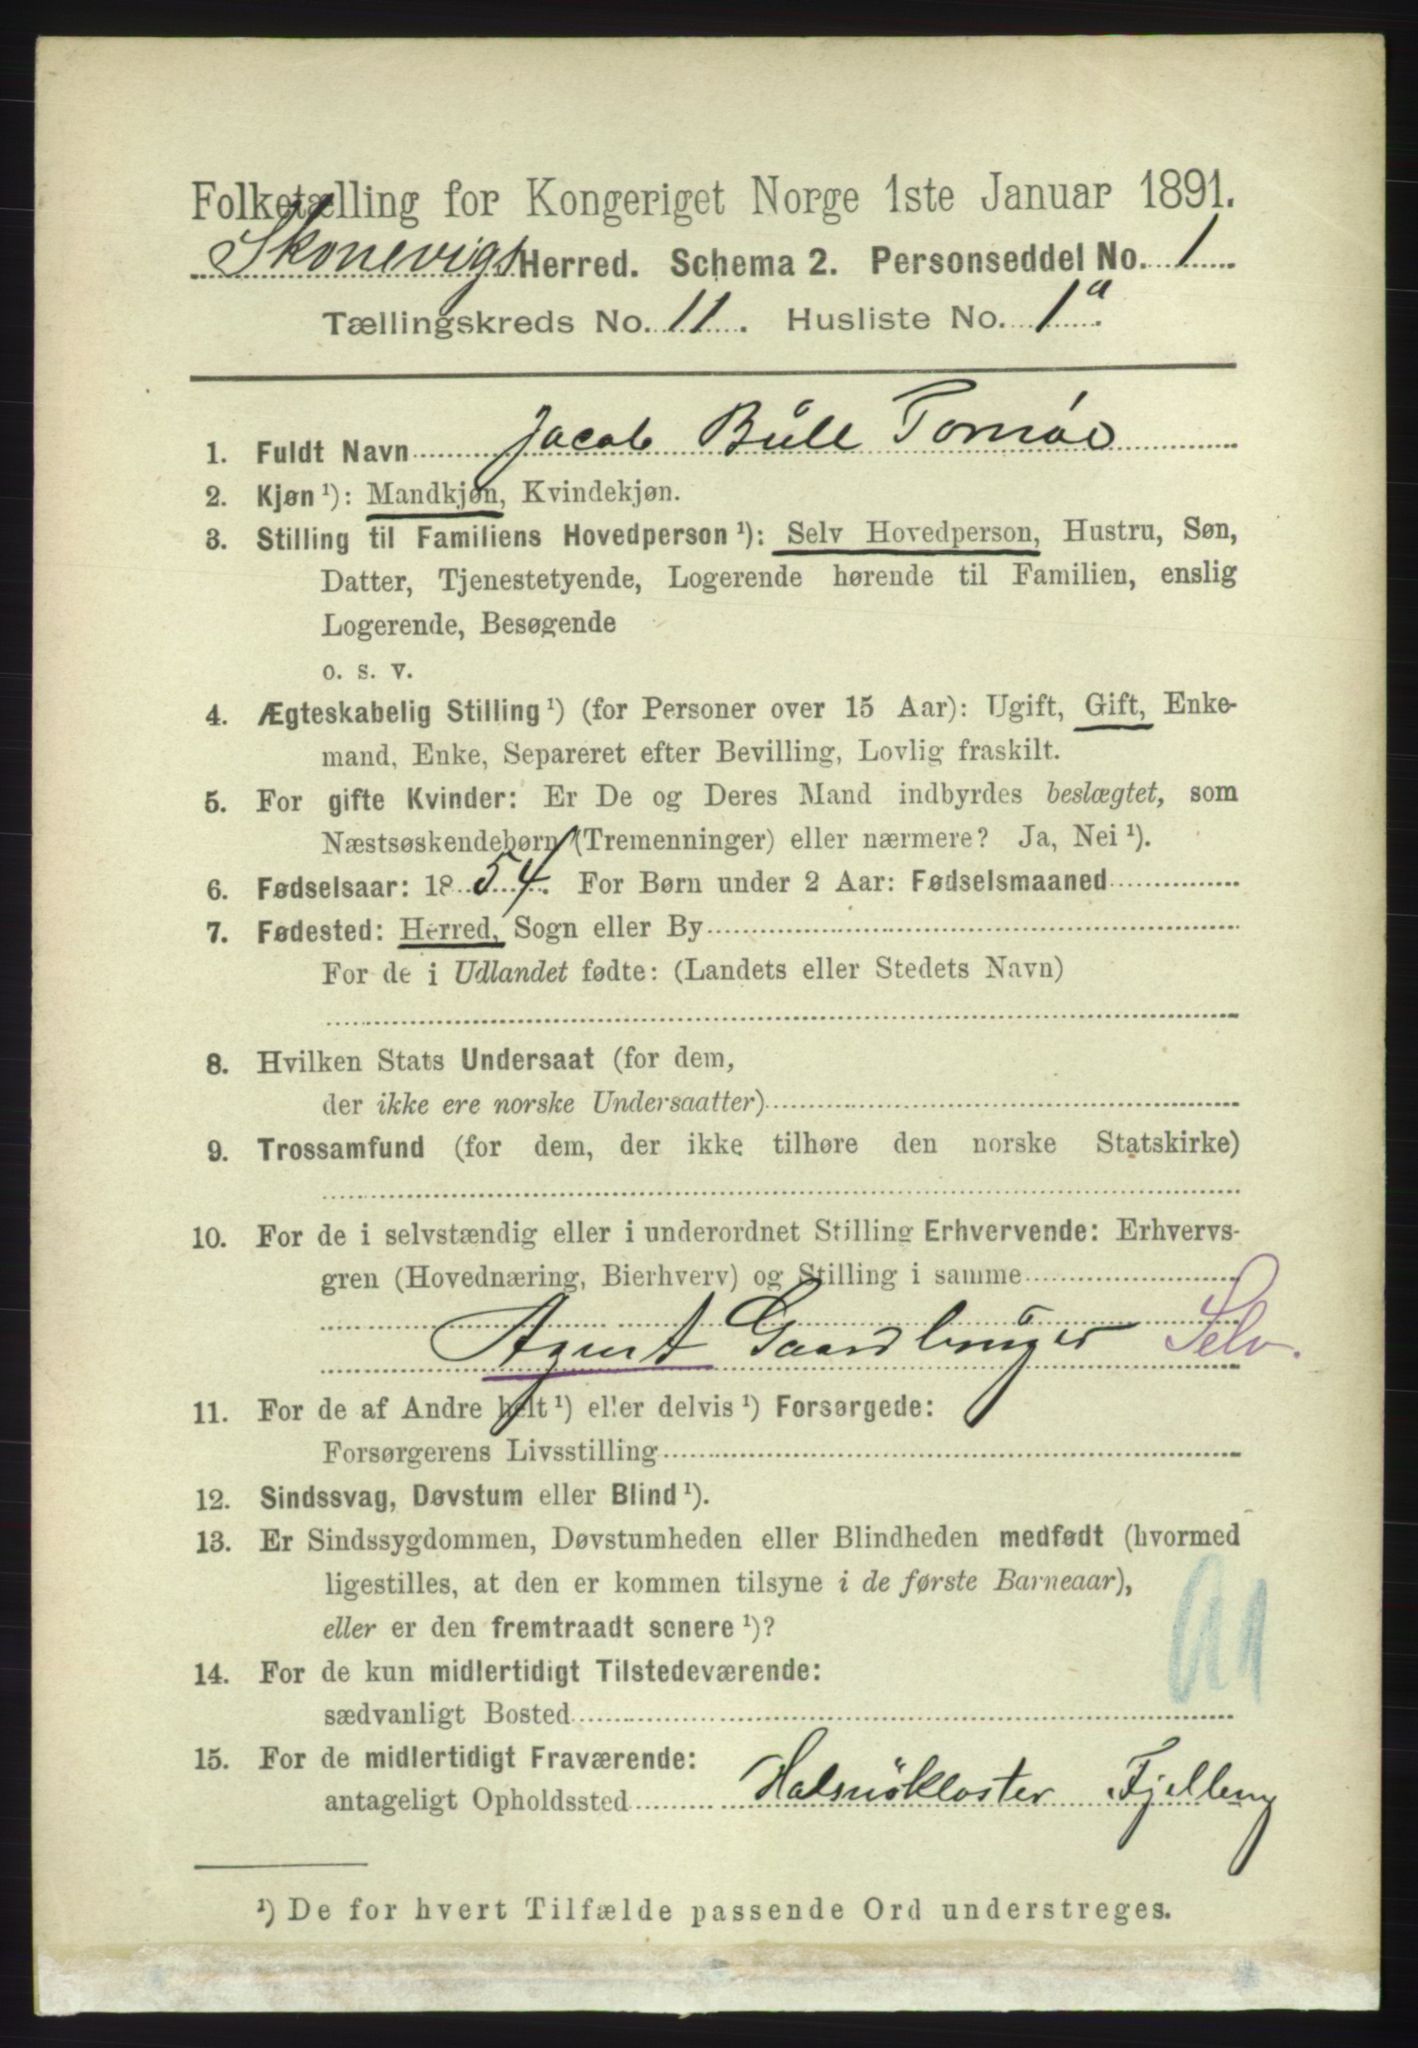 Folketælling for Kongeriget Norge 1ste Januar 1891.
Skonevigs Herred. Schema 2. Personseddel No. 1
Tællingskreds No. 11. Husliste No. 1a.
1. Fuldt Navn Jacob Büll Tomøe
2. Kjøn ¹): Mandkjøn, Kvindekjøn.
3. Stilling til Familiens Hovedperson ¹): Selv Hovedperson, Hustru, Søn,
Datter, Tjenestetyende, Logerende hørende til Familien, enslig
Logerende, Besøgende
o. s. v.
4. Ægteskabelig Stilling ¹) (for Personer over 15 Aar): Ugift, Gift, Enke-
mand, Enke, Separeret efter Bevilling, Lovlig fraskilt.
5. For gifte Kvinder: Er De og Deres Mand indbyrdes beslægtet, som
Næstsøskendebørn (Tremenninger) eller nærmere? Ja, Nei ¹).
6. Fødselsaar: 1854. For Børn under 2 Aar: Fødselsmaaned
7. Fødested: Herred, Sogn eller By
For de i Udlandet fødte: (Landets eller Stedets Navn)
8. Hvilken Stats Undersaat (for dem,
der ikke ere norske Undersaatter)
9. Trossamfund (for dem, der ikke tilhøre den norske Statskirke)
10. For de i selvstændig eller i underordnet Stilling Erhvervende: Erhvervs-
gren (Hovednæring, Bierhverv) og Stilling i samme
Agent Gaardbruger Selv.
11. For de af Andre helt ¹) eller delvis ¹) Forsørgede:
Forsørgerens Livsstilling
12. Sindssvag, Døvstum eller Blind ¹).
13. Er Sindssygdommen, Døvstumheden eller Blindheden medfødt (hvormed
ligestilles, at den er kommen tilsyne i de første Barneaar),
eller er den fremtraadt senere ¹)?
14. For de kun midlertidigt Tilstedeværende:
sædvanligt Bosted
15. For de midlertidigt Fraværende:
antageligt Opholdssted Halsnökloster Fjelberg
¹) De for hvert Tilfælde passende Ord understreges.